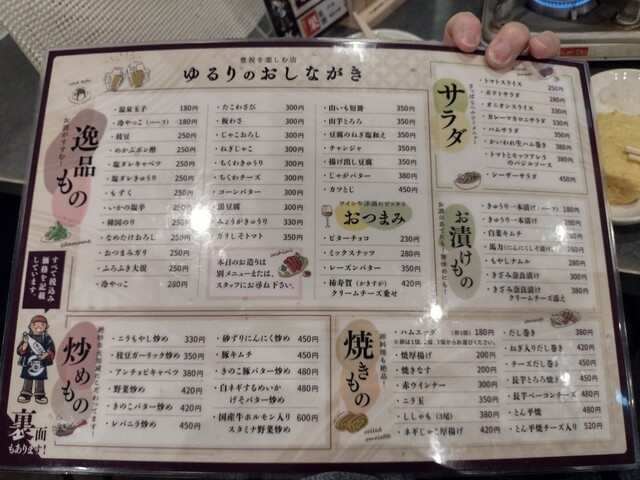 豊祝を楽しむ店
ゆるりのおしながき
逸品もの
お酒がすすむ!
・温泉玉子 180円
・冷やっこ(ハーフ) 180円
・枝豆 250円
・めかぶポン酢 250円
・塩ダレキャベツ 250円
・塩ダレきゅうり 250円
・もずく 250円
・いかの塩辛 250円
・韓国のり 250円
・なめたけおろし 250円
・おつまみガリ 250円
・ふろふき大根 250円
・冷やっこ 280円
・たこわさび 300円
・板わさ 300円
・じゃこおろし 300円
・ねぎじゃこ 300円
・ちくわきゅうり 300円
・ちくわチーズ 300円
・コーンバター 300円
湯豆腐 300円
みょうがきゅうり 330円
ガリしそトマト 350円
本日のお造りは
別メニューまたは、
スタッフにお尋ね下さい。
・山いも短冊 350円
・山芋とろろ 350円
・豆腐のねぎ塩和え 350円
・チャンジャ 350円
・揚げ出し豆腐 350円
・じゃがバター 380円
・カツとじ 450円
ワインや洋酒にぴったり
おつまみ
・ビターチョコ 230円
・ミックスナッツ 280円
・レーズンバター 350円
・柿寿賀(かきすが) 420円
クリームチーズ乗せ
サラダ
・トマトスライス 250円
・ポテトサラダ 280円
・オニオンスライス
・カレーマカロニサラダ 330円
・ハムサラダ 350円
・かいわれ生ハム巻き 380円
・トマトとモッツアレラ
のバジルソース 380円
・シーザーサラダ 450円
お漬けもの
・きゅうり一本漬け(ハーフ) 180円
・きゅうり一本漬け 280円
・白菜キムチ
・もやしナムル 280円
・きざみ奈良漬け 300円
・きざみ奈良漬け
クリームチーズ添え 380円
すべて税込み
価格を記載
しています。
裏面
もあります!
炒めもの
・ニラもやし炒め 330円
・枝豆ガーリック炒め 350円
・アンチョビキャベツ 380円
・野菜炒め 420円
・きのこバター炒め 420円
・レバニラ炒め 450円
・砂ずりにんにく炒め 450円
・豚キムチ 450円
・きのこ豚バター炒め 480円
・白ネギするめいか 480円
げそバター炒め
・国産牛ホルモン入り 600円
スタミナ野菜炒め
焼きもの
卵料理も絶品!
・ハムエッグ (卵1個) 180円
※卵は1個、2個、3個からお選びください。
・焼厚揚げ 200円
・焼きなす 200円
・赤ウインナー 300円
・ニラ玉 350円
・ししゃも(3尾) 380円
・ネギじゃこ厚揚げ 420円
rolled omelette
・だし巻き 380円
・ねぎ入りだし巻き 420円
・チーズだし巻き 450円
・長芋とろろ焼き 450円
・長芋ベーコンチーズ 480円
・とん平焼 480円
・とん平焼チーズ入り 520円